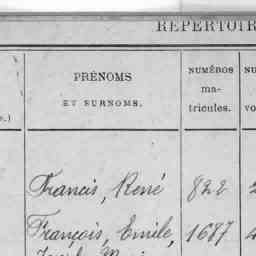 REPERTOIR
PRÉNOMS
ET SURNOMS.
NUMÉROS
ma-
tricules.
NU
vo
.)
Francis, René 822 2
François, Emile, 1687 4